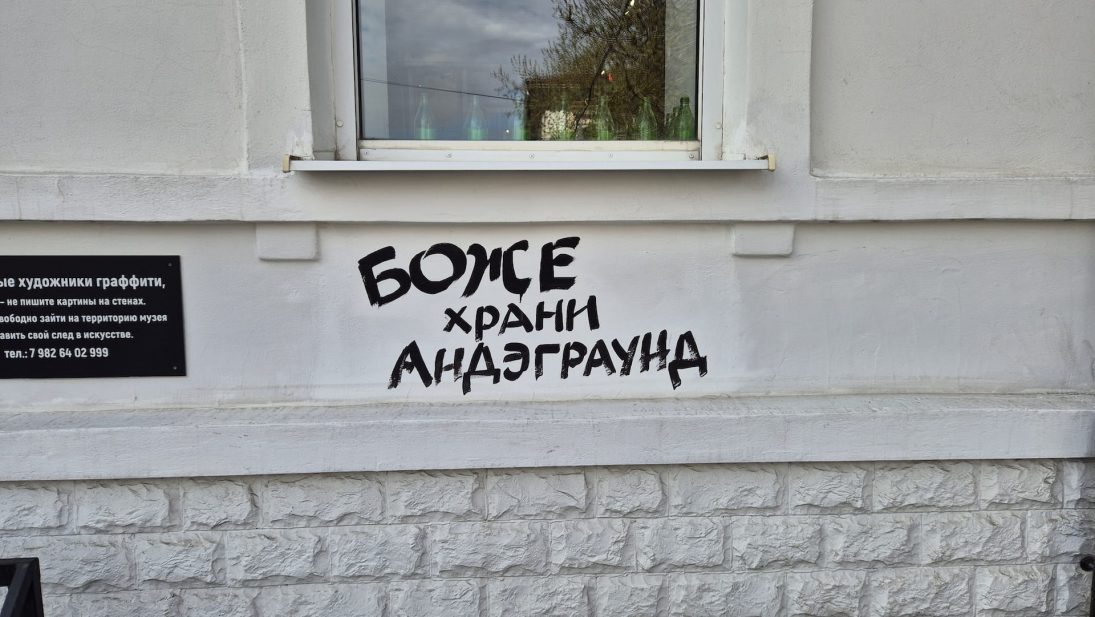 художники граффити,
- не пишите картины на стенах.
зайти на территорию музея
свой след в искусстве.
тел.: 7 982 64 02 999
БОЖЕ
ХРАНИ
АНДЭГРАУНД